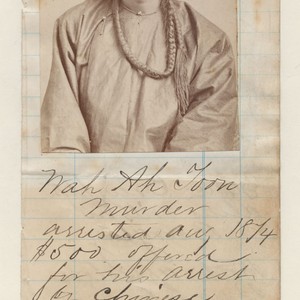 Wah Ah Toon
Murder
arrested Aug 1874
$500 offered
for his arrest
by Chinese